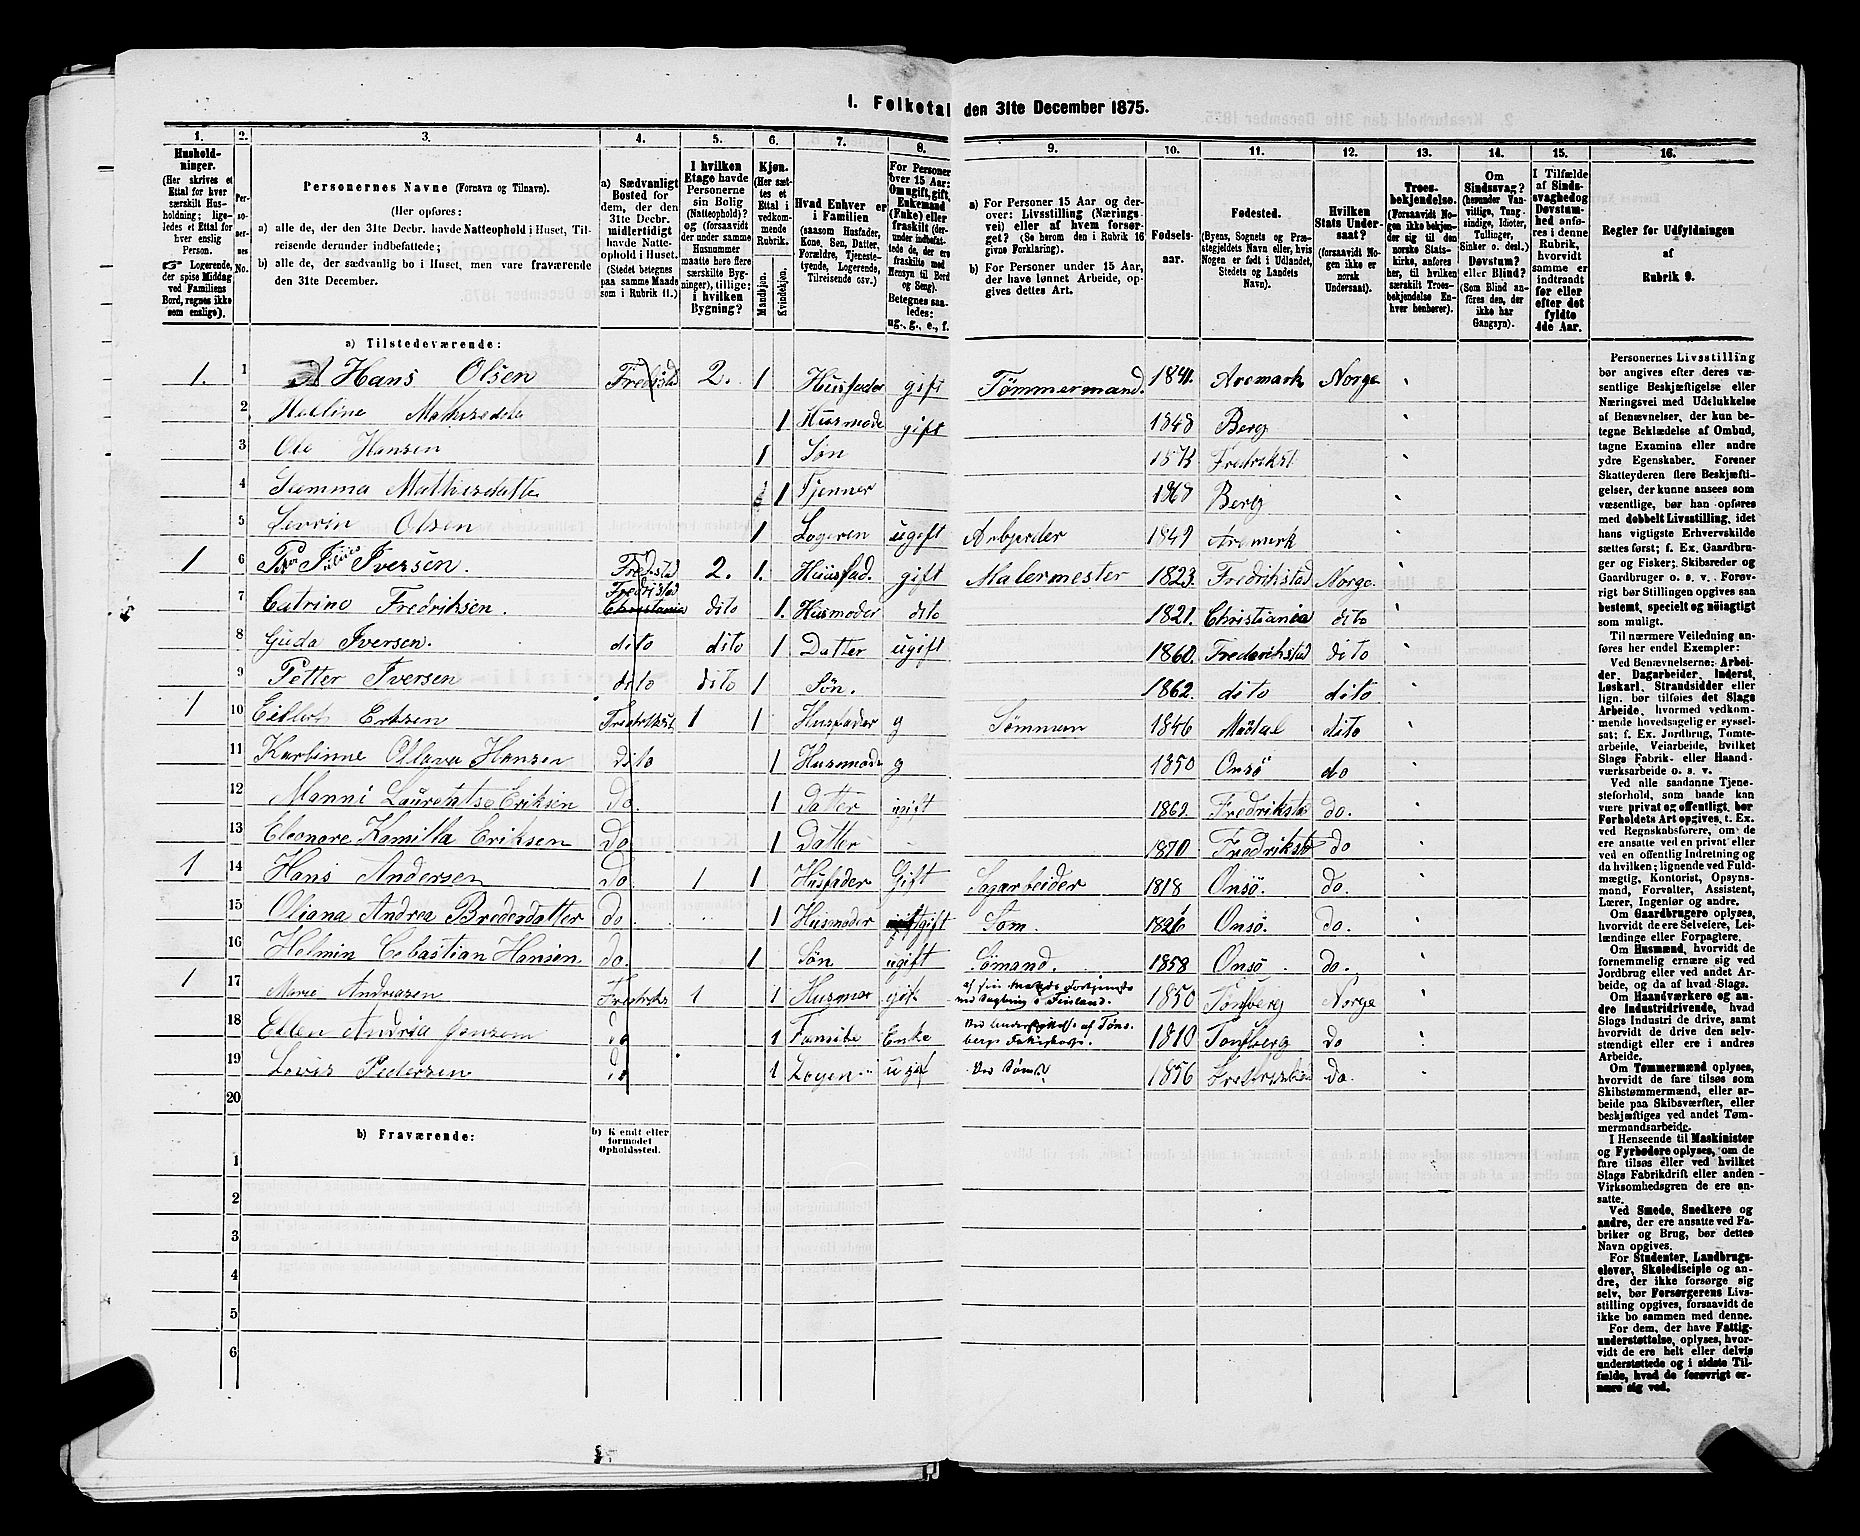 1. Folketal den 31te December 1875.
1. 2. 3. 4. 5. 6. 7. 8. 9. 10. 11. 12. 13. 14. 15. 16.
Hushold-
ninger.
(Her skrives et
Ettal for hver
særskilt Hus-
holdning; lige-
ledes et Ettal
for hver enslig
Person.
☞ Logerende,
der spise Middag
ved Familiens
Bord, regnes ikke
som enslige).
Per-
so-
ner-
nes
No.
Personernes Navne (Fornavn og Tilnavn).
(Her opføres:
a) alle de, der den 31te Decbr. havde Natteophold i Huset, Til-
reisende derunder indbefattede;
b) alle de, der sædvanlig bo i Huset, men vare fraværende
den 31te December.
a) Sædvanligt
Bosted for
dem, der den
31te Decbr.
midlertidigt
havde Natte-
ophold i Huset.
(Stedet betegnes
paa samme Maade
som i Rubrik 11.)
I hvilken
Etage havde
Personerne
sin Bolig
(Natteophold)?
og (forsaavidt
der under samme
Husnummer
maatte høre flere
særskilte Byg-
ninger), tillige:
i hvilken
Bygning?
Kjøn.
(Her sæt-
tes et
Ettal i
vedkom-
mende
Rubrik.
Mandkjøn.
Kvindekjøn.
Hvad Enhver er
i Familien
(saasom Husfader,
Kone, Søn, Datter,
Forældre, Tjeneste-
tyende, Logerende,
Tilreisende osv.)
For Personer
over 15 Aar:
Om ugift, gift,
Enkemand
(Enke) eller
fraskilt (der-
under indbefat-
tede de, der ere
fraskilte med
Hensyn til Bord
og Seng).
Betegnes saa-
ledes:
ug., g., e., f.
a) For Personer 15 Aar og der-
over: Livsstilling (Nærings-
vei) eller af hvem forsør-
get? (Se herom den i Rubrik 16
givne Forklaring).
b) For Personer under 15 Aar,
der have lønnet Arbeide, op-
gives dettes Art.
Fødsels-
aar.
Fødested.
(Byens, Sognets og Præ-
stegjeldets Navn eller, hvis
Nogen er født i Udlandet,
Stedets og Landets
Navn).
Hvilken
Stats Under-
saat?
(forsaavidt No-
gen ikke er
norsk
Undersaat).
Troes-
bekjendelse.
(Forsaavidt No-
gen ikke bekjen-
der sig til den
norske Stats-
kirke, anføres
her, til hvilken
særskilt Troes-
bekjendelse En-
hver henhører).
Om
Sindssvag?
(herunder Van-
vittige, Tung-
sindige, Idioter,
Tullinger,
Sinker o. desl.)
Døvstum?
eller Blind?
(Som Blind an-
føres den, der
ikke har
Gangsyn).
I Tilfælde
af Sinds-
svaghed og
Døvstum-
hed anfø-
res i denne
Rubrik,
hvorvidt
samme er
indtraadt
før eller
efter det
fyldte
4de Aar.
Regler for Udfyldningen
af
Rubrik 9.
a) Tilstedeværende:
1. 1 Hans Olsen Fredrstad 2. 1 Husfader gift Tømmermand. 1841. Aremark Norge
2 1 Husmode gift 1848 Berg
3 Ole Hansen 1 Søn Fredrikst
4 Mathisdatte 1 Tjenner Berg
5 Olsen 1 Logeren ugift Arbjeider 1849 Aremark
1 6 Iversen. Fredstad 2. 1. Huusfad. gift Malermester 1823. Fredrikstad Norge.
7 Catrine Fredriksen. Fredristad Christania dito 1. Husmoder dito 1821. Christiania dito
8 Guda Iversen. dito dito 1 Datter ugift 1860. Frederikstad dito
9 Petter Iversen dito dito 1 Søn. 1862. dito dito
1 10 Eriksen Fredrikst 1 1 Husfader g Sømman 1846 dito
11 Ollava Hansen dito 1 Husmode g 1850 Onsø do
12 Manni Eriksen do. 1 Datter ugift 1862. Fredriksta do.
13 Eleonore Kamilla Eriksen Do 1 Datter 1870 Fredriksta do
1 14 Hans Andersen Do. 1 1 Husfader Gift Sagarbeider 1818 Onsø. Do.
15 Oliana Andrea Bredesdatter do. 1 Husmoder gift Som. 1826 Onsø. Do.
16 Helmin Cebastian Hansen. do. 1 Søn ugift Sømand. 1858 Onsø do.
1 17 Marie Andriasen Fredriks 1 1 Husmor gift 1850 Tønsberg Norge
18 Ellen Andria Jensen do 1 Enke 1810 Tønsberg do
19 Lovis Pedersen do 1 Logen ugif 1856 do.
20
b) Fraværende:
b) Kjendt eller
formodet
Opholdssted.
1
2
3
4
5
6
Personernes Livsstilling
bør angives efter deres væ-
sentlige Beskjæftigelse eller
Næringsvei med Udelukkelse
af Benævnelser, der kun be-
tegne Beklædelse af Ombud,
tagne Examina eller andre
ydre Egenskaber. Forener
Skatteyderen flere Beskjæfti-
gelser, der kunne ansees som
væsentlige, bør han opføres
med dobbelt Livsstilling, idet
hans vigtigste Erhvervskilde
sættes først; f. Ex. Gaardbru-
ger og Fisker; Skibsreder og
Gaardbruger o. s. v. Forøv-
rigt bør Stillingen opgives saa
bestemt, specielt og nøiagtigt
som muligt.
Til nærmere Veiledning an-
føres her endel Exempler:
Ved Benævnelserne: Arbei-
der, Dagarbeider, Inderst,
Løskarl, Strandsidder eller
lign. bør tilføies det Slags
Arbeide, hvormed vedkom-
mende hovedsagelig er syssel-
sat; f. Ex. Jordbrug, Tomte-
arbeide, Veiarbeide, hvilket
Slags Fabrik- eller Haand-
værksarbeide o. s. v.
Ved alle saadanne Tjene-
steforhold, som baade kan
være privat og offentligt, bør
Forholdets Art opgives, t. Ex.
ved Regnskabsførere, om de
ere ansatte ved en privat eller
ved en offentlig Indretning og
da hvilken; lignende ved Fuld-
mægtig, Kontorist, Opsyns-
mand, Forvalter, Assistent,
Lærer, Ingeniør og andre.
Om Gaardbrugere oplyses,
hvorvidt de ere Selveiere, Lei-
lændinge eller Forpagtere.
Om Husmænd, hvorvidt de
fornemmelig ernære sig ved
Jordbrug eller ved andet Ar-
beide, og da ved hvad Slags.
Om Haandværkere og an-
dre Industridrivende, hvad
Slags Industri de drive, samt
hvorvidt de drive den selv-
stændigt eller ere i andres
Arbeide.
Om Tømmermænd oplyses,
hvorvidt de fare tilsøs som
Skibstømmermænd, eller ar-
beide paa Skibsværfter, eller
beskjæftiges ved andet Tøm-
mermandsarbeide.
I Henseende til Maskinister
og Fyrbødere oplyses, om de
fare tilsøs eller ved hvilket
Slags Fabrikdrift eller anden
Virksomhedsgren de ere an-
satte.
Ved Smede, Snedkere og
andre, der ere ansatte ved Fa-
briker og Brug, bør dettes
Navn opgives.
For Studenter, Landbrugs-
elever, Skoledisciple og an-
dre, der ikke forsørge sig
selv, bør Forsørgerens Livs-
stilling opgives, forsaavidt de
ikke bo sammen med denne.
For dem, der have Fattig-
understøttelse, oplyses, hvor-
vidt de ere helt eller delvis
understøttede og i sidste Til-
fælde, hvad de forøvrigt er-
nære sig ved.